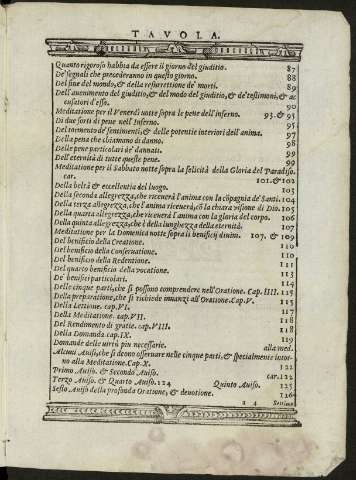 TAVOLA.
Quanto rigoroso habbia da essere il giorno del giuditio. 87
De' segnali che precederanno in questo giorno. 88
Del fine del mondo, & della resurrettione de' morti. 89
Dell'auenimento del giuditio, & del modo del giuditio, & de' testimoni, & ac
cusatori d'esso. 90
Meditatione per il Venerdì notte sopra le pene dell'inferno. 93. & 95
Di due sorti di pene nell'Inferno. 95
Del tormento de' sentimenti, & delle potentie interiori dell'anima. 97
Della pena che chiamano di danno. 98
Delle pene particolari de' dannati. 99
Dell'eternità di tutte queste pene. 99
Meditatione per il Sabbato notte sopra la felicità della Gloria del Paradiso.
car. 101. & 103
Della beltà & eccellentia del luogo. 103
Della seconda allegrezza, che riceuerà l'anima con la cōpagnia de' Santi. 104
Della terza allegrezza, che l'anima riceuerà, cō la chiara visione di Dio. 105
Della quarta allegrezza, che riceuerà l'anima con la gloria del corpo. 106
Della quinta allegrezza, che è della lunghezza della eternità. 107
Meditatione per la Domenica notte sopra i benificij diuini. 107. & 109
Del benificio della Creatione. 110
Del benificio della Conseruatione. 110
Del benificio della Redentione. 111
Del quarto benificio della vocatione. 113
De' benificij particolari. 114
Delle cinque parti, che si possono comprendere nell'Oratione. Cap. IIII. 115
Della preparatione, che si richiede innanzi all'Oratione. Cap. V. 115
Della Lettione. cap. VI. 116
Della Meditatione. cap. VII. 117
Del Rendimento di gratie. cap. VIII. 118
Della Domanda cap. IX. 119
Domande delle uirtù piu necessarie. alla med.
Alcuni Auisi, che si deono osseruare nelle cinque parti, & spetialmente intor
no alla Meditatione. Cap. X. 121
Primo Auiso. & Secondo Auiso. car. 122
Terzo Auiso. & Quarto Auiso. 124 Quinto Auiso. 125
Sesto Auiso della profonda Oratione, & deuotione. 126
a 4 Settimo